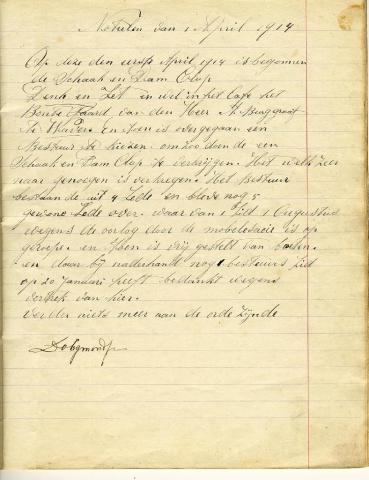 Notulen van 1 April 1914
Op deze den eerste April 1914 is begonnen
de Schaak en Dam Clup
Denk en Zet en wel in het Cafe het
Bonte Paard van den Heer A. Burggraaf
te Waver. En toen is overgegaan een
Bestuur te kiezen om zoo doende een
Schaak en Dam Clup te verkrijgen. Het welk zeer
naar genoegen is verkregen. Het Bestuur
bestaande uit 4 Lede en bleve nog 5
gewone Lede over. waar van 1 Lid 1 Augustus
wegens de oorlog door de mobelesacie is op
geroepe. en is vrij gestelt van boeten.
en daar bij naderhandt nog 1 bestuurs Lid
op 20 Januari heeft bedankt wegens
vertrek van hier.
verder niets meer aan de orde zijnde